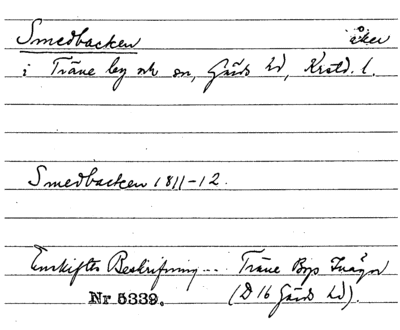 Smedbacken åker
i Träne by och sn, Gärds hd, Krstd. l.
Smedbacken 1811-12.
Enskiftes Beskrifning... Träne Bys Inägor
Nr 5339. (D 16 Gärds hd).